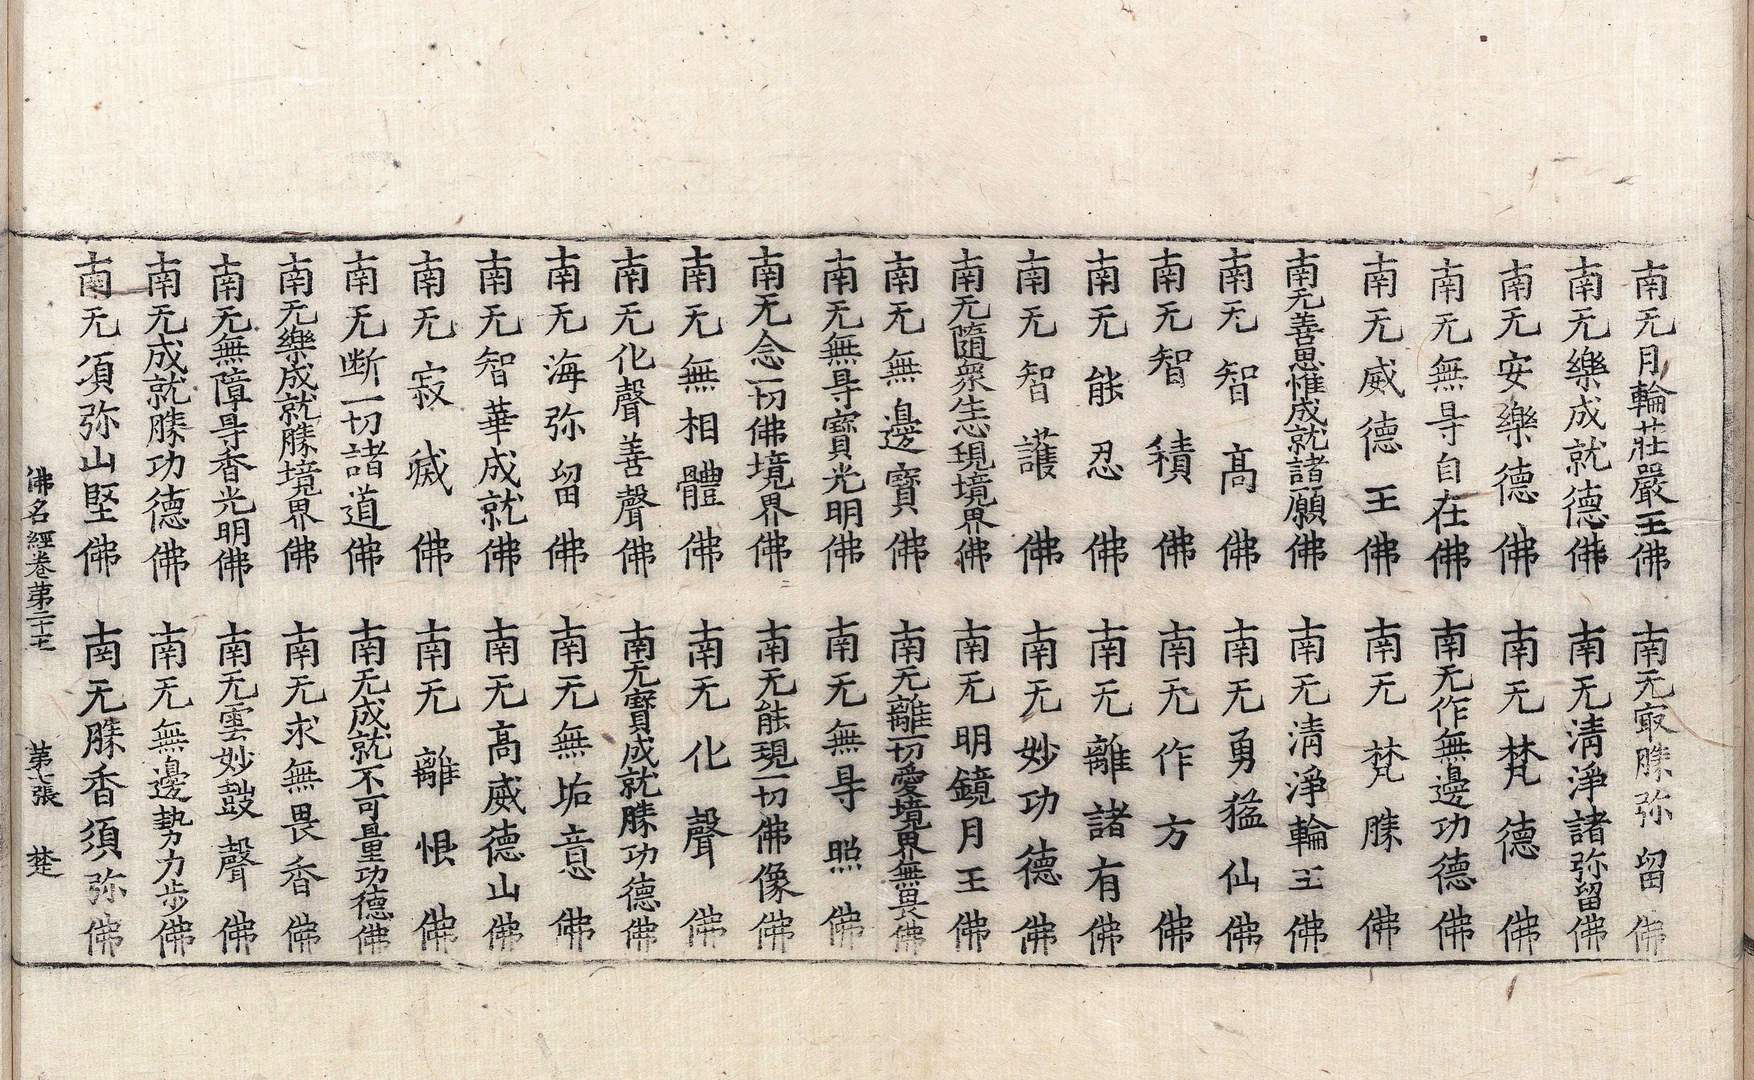 南无月輪莊嚴王佛　南无㝡勝弥留佛
南无樂成就德佛　南无清淨諸弥留佛
南无安樂德佛　南无梵德佛
南无無㝵自在佛　南无作無邊功德佛
南无威德王佛　南无梵勝佛
南无善思惟成就諸願佛　南无清淨輪王佛
南无智高佛　南无勇猛仙佛
南无智積佛　南无作方佛
南无能忍佛　南无離諸有佛
南无智護佛　南无妙功德佛
南无隨衆生心現境界佛　南无明鏡月王佛
南无無邊寶佛　南无離一切愛境界無畏佛
南无無㝵寶光明佛　南无無㝵照佛
南无念一切佛境界佛　南无能現一切佛像佛
南无無相體佛　南无化聲佛
南无化聲善聲佛　南无寶成就勝功德佛
南无海弥留佛　南无無垢意佛
南无智華成就佛　南无高威德山佛
南无寂滅佛　南无離恨佛
南无断一切諸道佛　南无成就不可量功德佛
南无樂成就勝境界佛　南无求無畏香佛
南无無障㝵香光明佛　南无雲妙鼓聲佛
南无成就勝功德佛　南无無邊勢力步佛
南无須弥山堅佛　南无勝香須弥佛
佛名經卷第二十七　第七張　楚